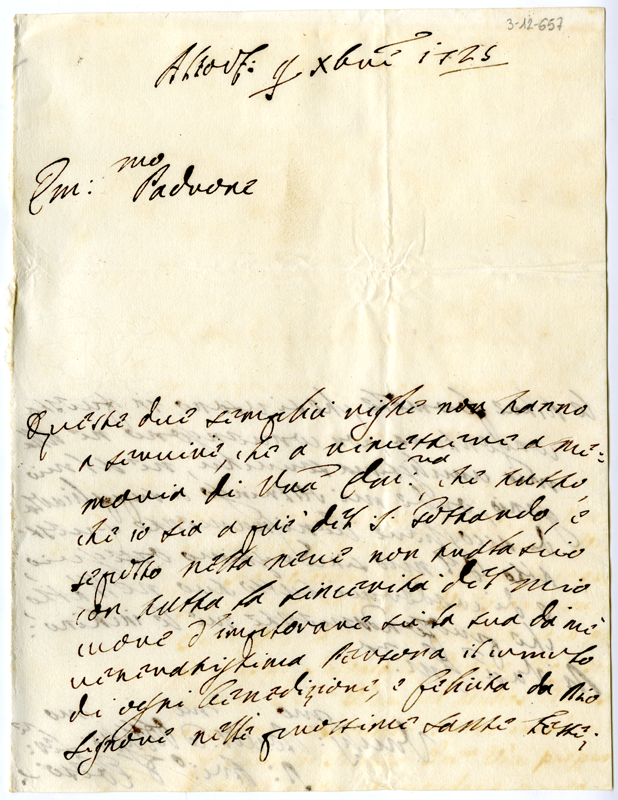 3-12-657
Altorf: 9 Xbre 1725
Em:mo Padrone
Queste due semplici righe non hanno
a servire, che a rimettere a me=
moria di Vra Em:za, che tutto,
che io sia a piè del S. Gottardo, e
sepolto nella neve non tralascio
con tutta la sincerità del mio
cuore d'implorare su la sua da me
veneratissima Persona il cumulo
di ogni benedizione, e felicità da Nro
Signore nelle prossime sante Feste;